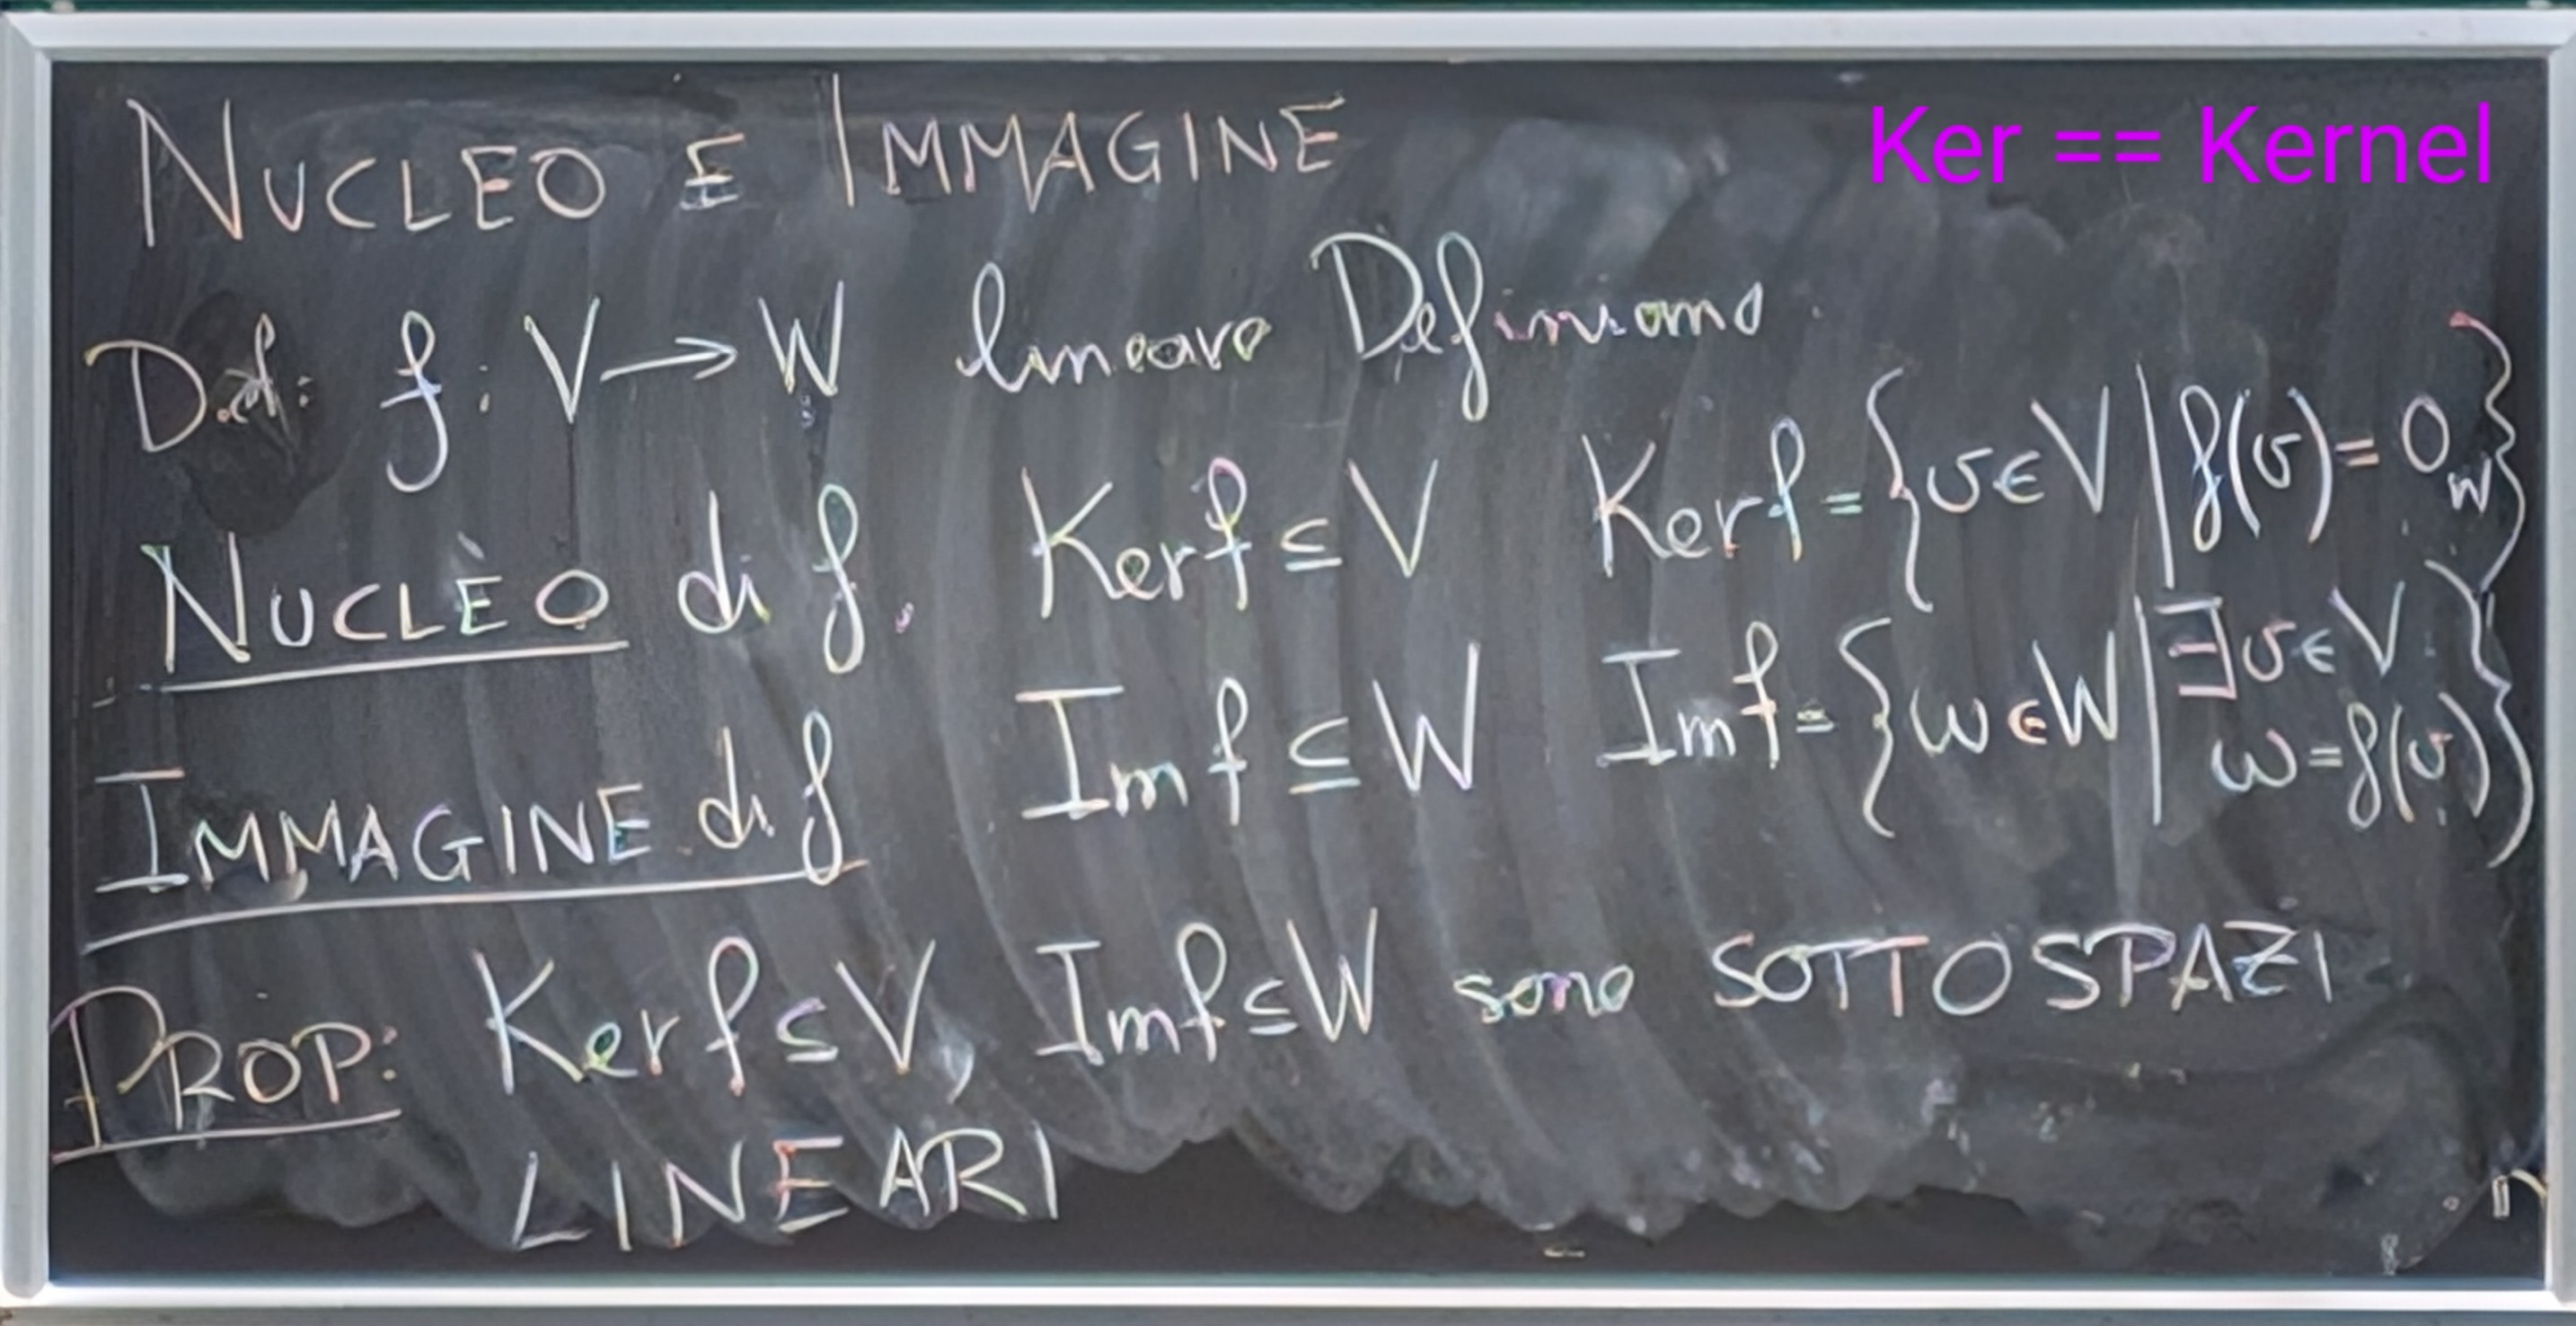 NUCLEO E IMMAGINE
Ker == Kernel
Def: f: V → W lineare Definiamo
NUCLEO di f. Ker f ⊆ V Ker f = {v ∈ V | f(v) = 0_W}
IMMAGINE di f Im f ⊆ W Im f = {w ∈ W | ∃ v ∈ V
w = f(v)}
PROP: Ker f ⊆ V, Im f ⊆ W sono SOTTOSPAZI
LINEARI